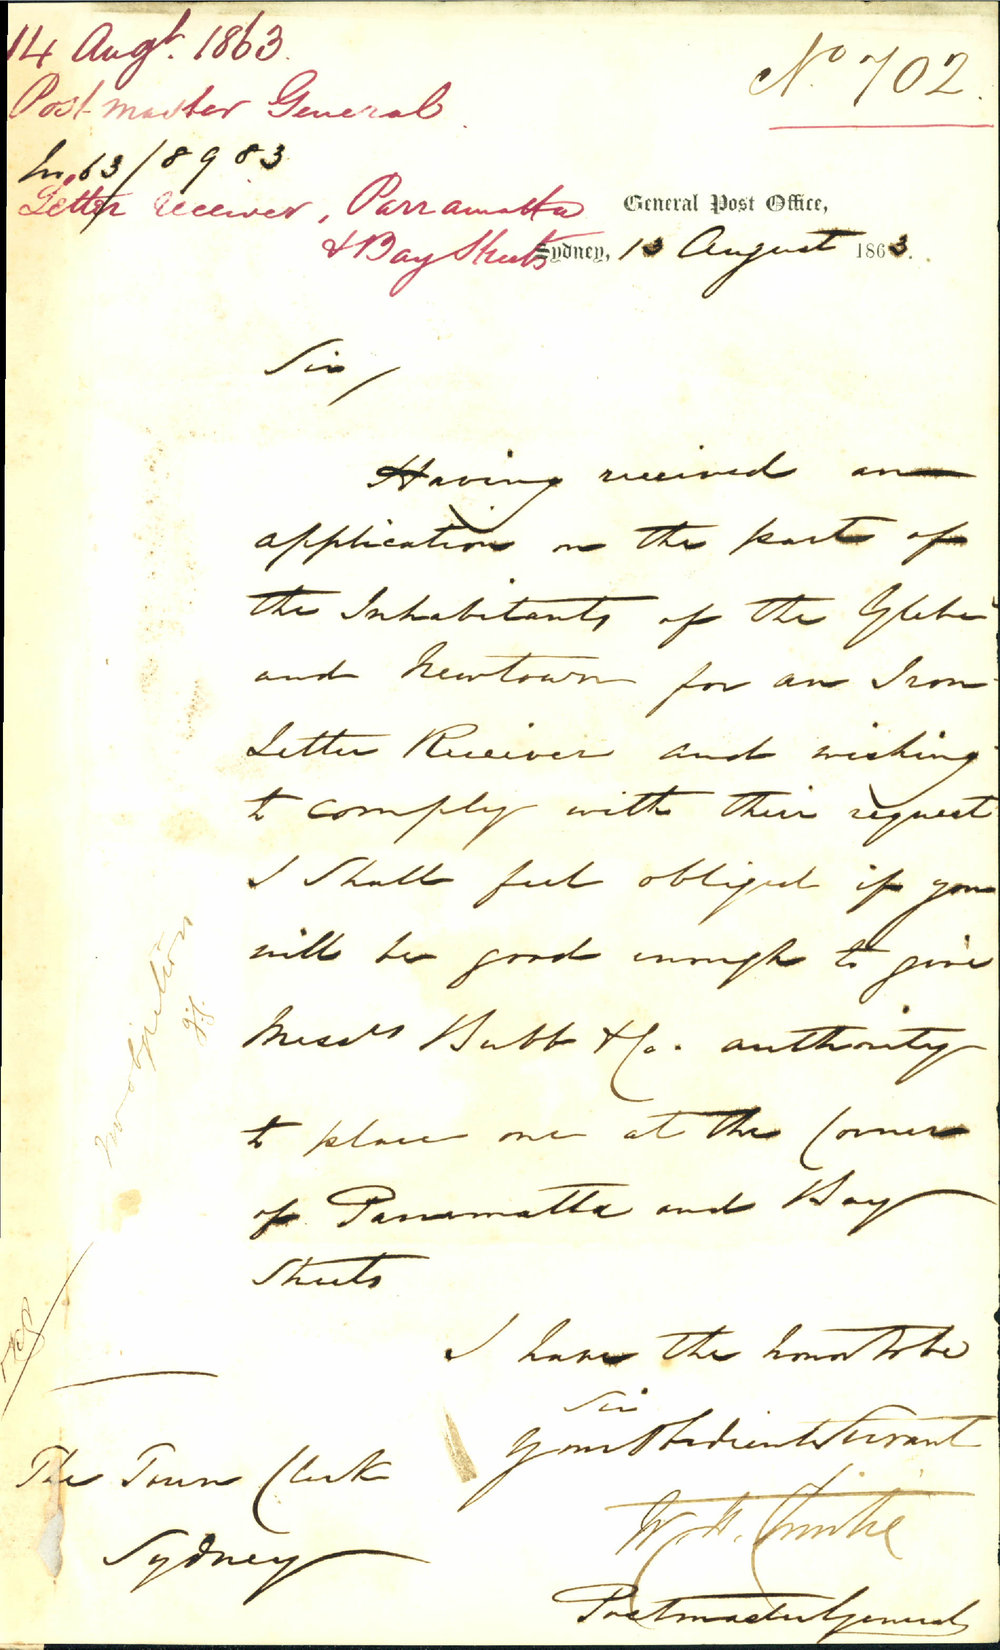 14 Augt. 1863.
No 702.
Postmaster General
In, 63/8983
Letter receiver, Parramatta
& Bay Streets
General Post Office,
Sydney, 13 August 1863.
Sir,
Having received an
application on the part of
the Inhabitants of the Glebe
and Newtown for an Iron
Letter Receiver and wishing
to comply with their request
I shall feel obliged if you
will be good enough to give
Messrs Bubb & Co. authority
to place one at the Corner
of Parramatta and Bay
Streets
I have the honor to be
Sir
Your Obedient Servant
W. H. Christie
Postmaster General
No objection
The Town Clerk
Sydney